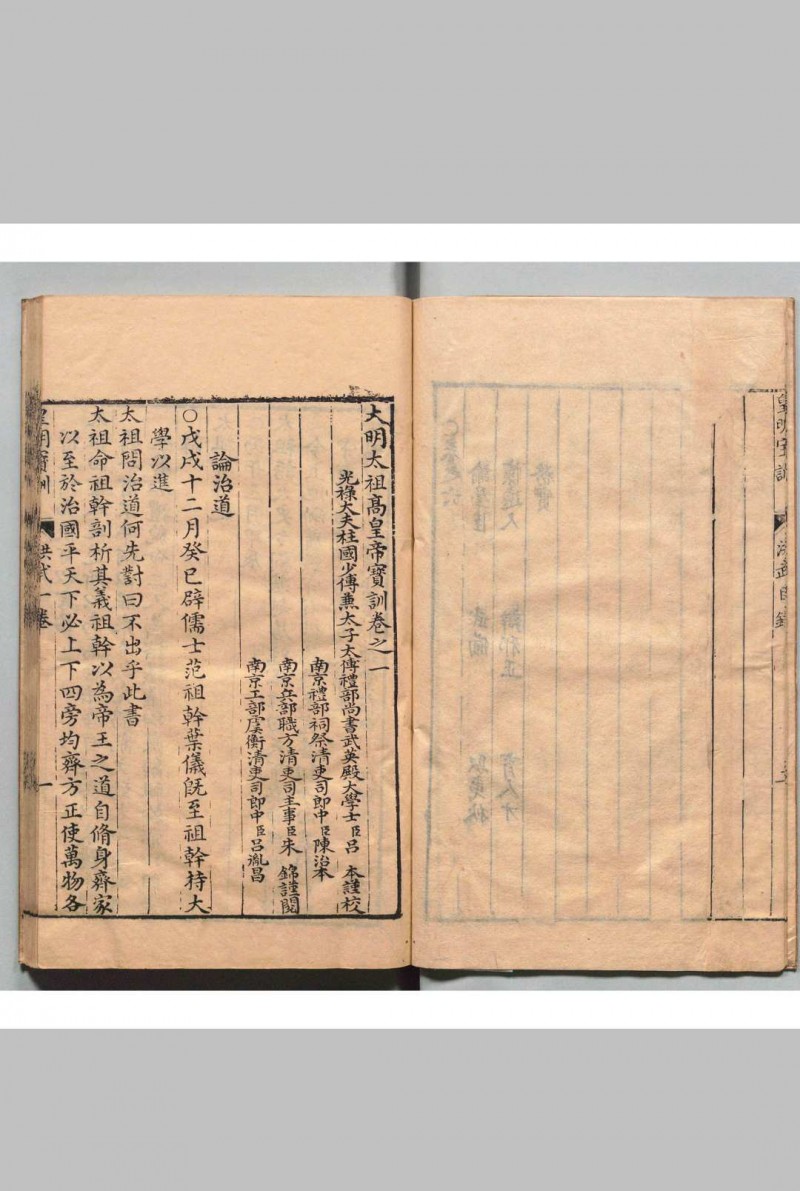 皇明寶訓
大明太祖高皇帝寶訓卷之一
光祿大夫柱國少傅兼太子太傅禮部尚書武英殿大學士臣呂 本謹校
南京禮部祠祭清吏司郎中臣陳治本
南京兵部職方清吏司主事臣朱 錦謹閱
南京工部虞衡清吏司郎中臣呂胤昌
論治道
○戊戌十二月癸巳辟儒士范祖幹葉儀旣至祖幹持大
學以進
太祖問治道何先對曰不出乎此書
太祖命祖幹剖析其義祖幹以為帝王之道自脩身齊家
以至於治國平天下必上下四旁均齊方正使萬物各
皇明寶訓 洪武一卷 一